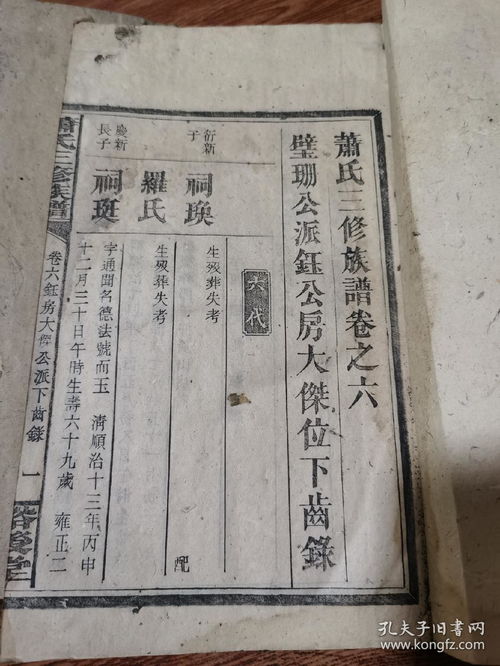 蕭氏三修族譜卷之六
璧珊公派鈺公房大傑位下齒錄
六代
衍新
子
祠瑍
生歿葬失考
配
羅氏
生歿葬失考
慶新
長子
祠珽
字通聞名德法號而玉 清順治十三年丙申
十二月三十日午時生壽六十九歲 雍正二
蕭氏三修族譜
卷六鈺房大傑公派下齒錄
一
裕後堂
孔夫子旧书网
www.kongfz.com